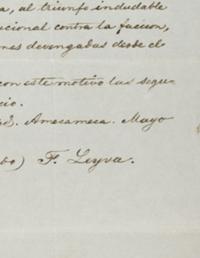 a, al triunfo indudable
ucional contra la faccion,
ones devengadas desde el
con este motivo las segu-
cio.
ad. Amecameca. Mayo
do) F. Leyva.